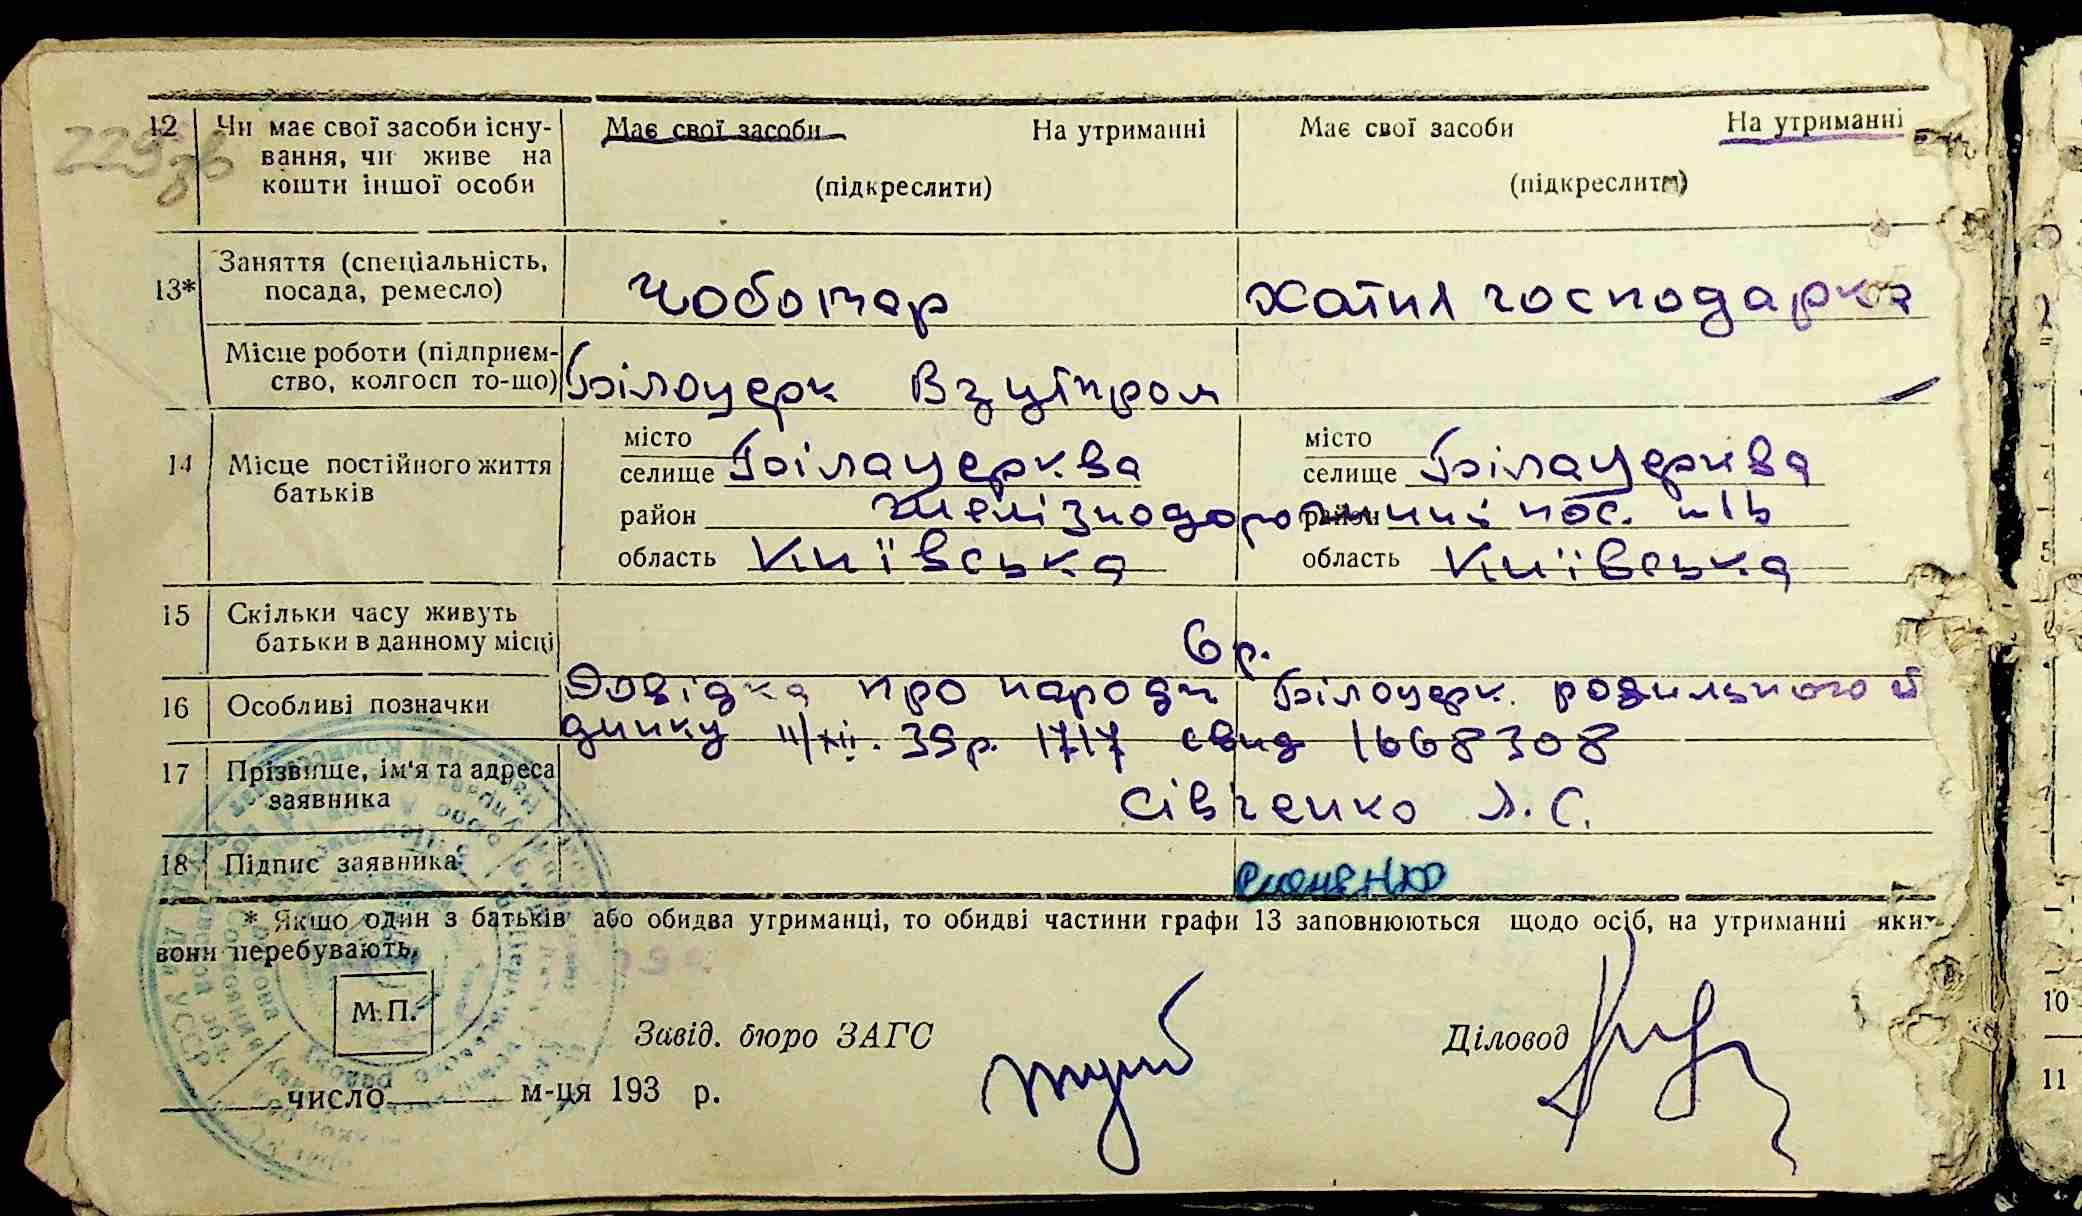 229 зв
12 Чи має свої засоби існу- Має свої засоби На утриманні Має свої засоби На утриманні
вання, чи живе на
кошти іншої особи (підкреслити) (підкреслити)
13* Заняття (спеціальність, посада, ремесло) Чоботар Хатня господарка
Місце роботи (підприєм-
ство, колгосп то-що) Білоцерк Взутпром —
14 Місце постійного життя батьків
місто місто
селище Біла церква селище Біла церква
район Желізнодорожний район пос.
область Київська область Київська
15 Скільки часу живуть
батьки в данному місці 6 р.
16 Особливі позначки Довідка про народж Білоцерк. родильного
динку 11/XII. 39 р. 1717 свид 1668308
17 Прізвище, ім'я та адреса
заявника Сівченко Л. С.
18 Підпис заявника
* Якщо один з батьків або обидва утриманці, то обидві частини графи 13 заповнюються щодо осіб, на утриманні яких
вони перебувають.
М. П.
Завід. бюро ЗАГС Діловод
число м-ця 193 р.
2
5
10
11